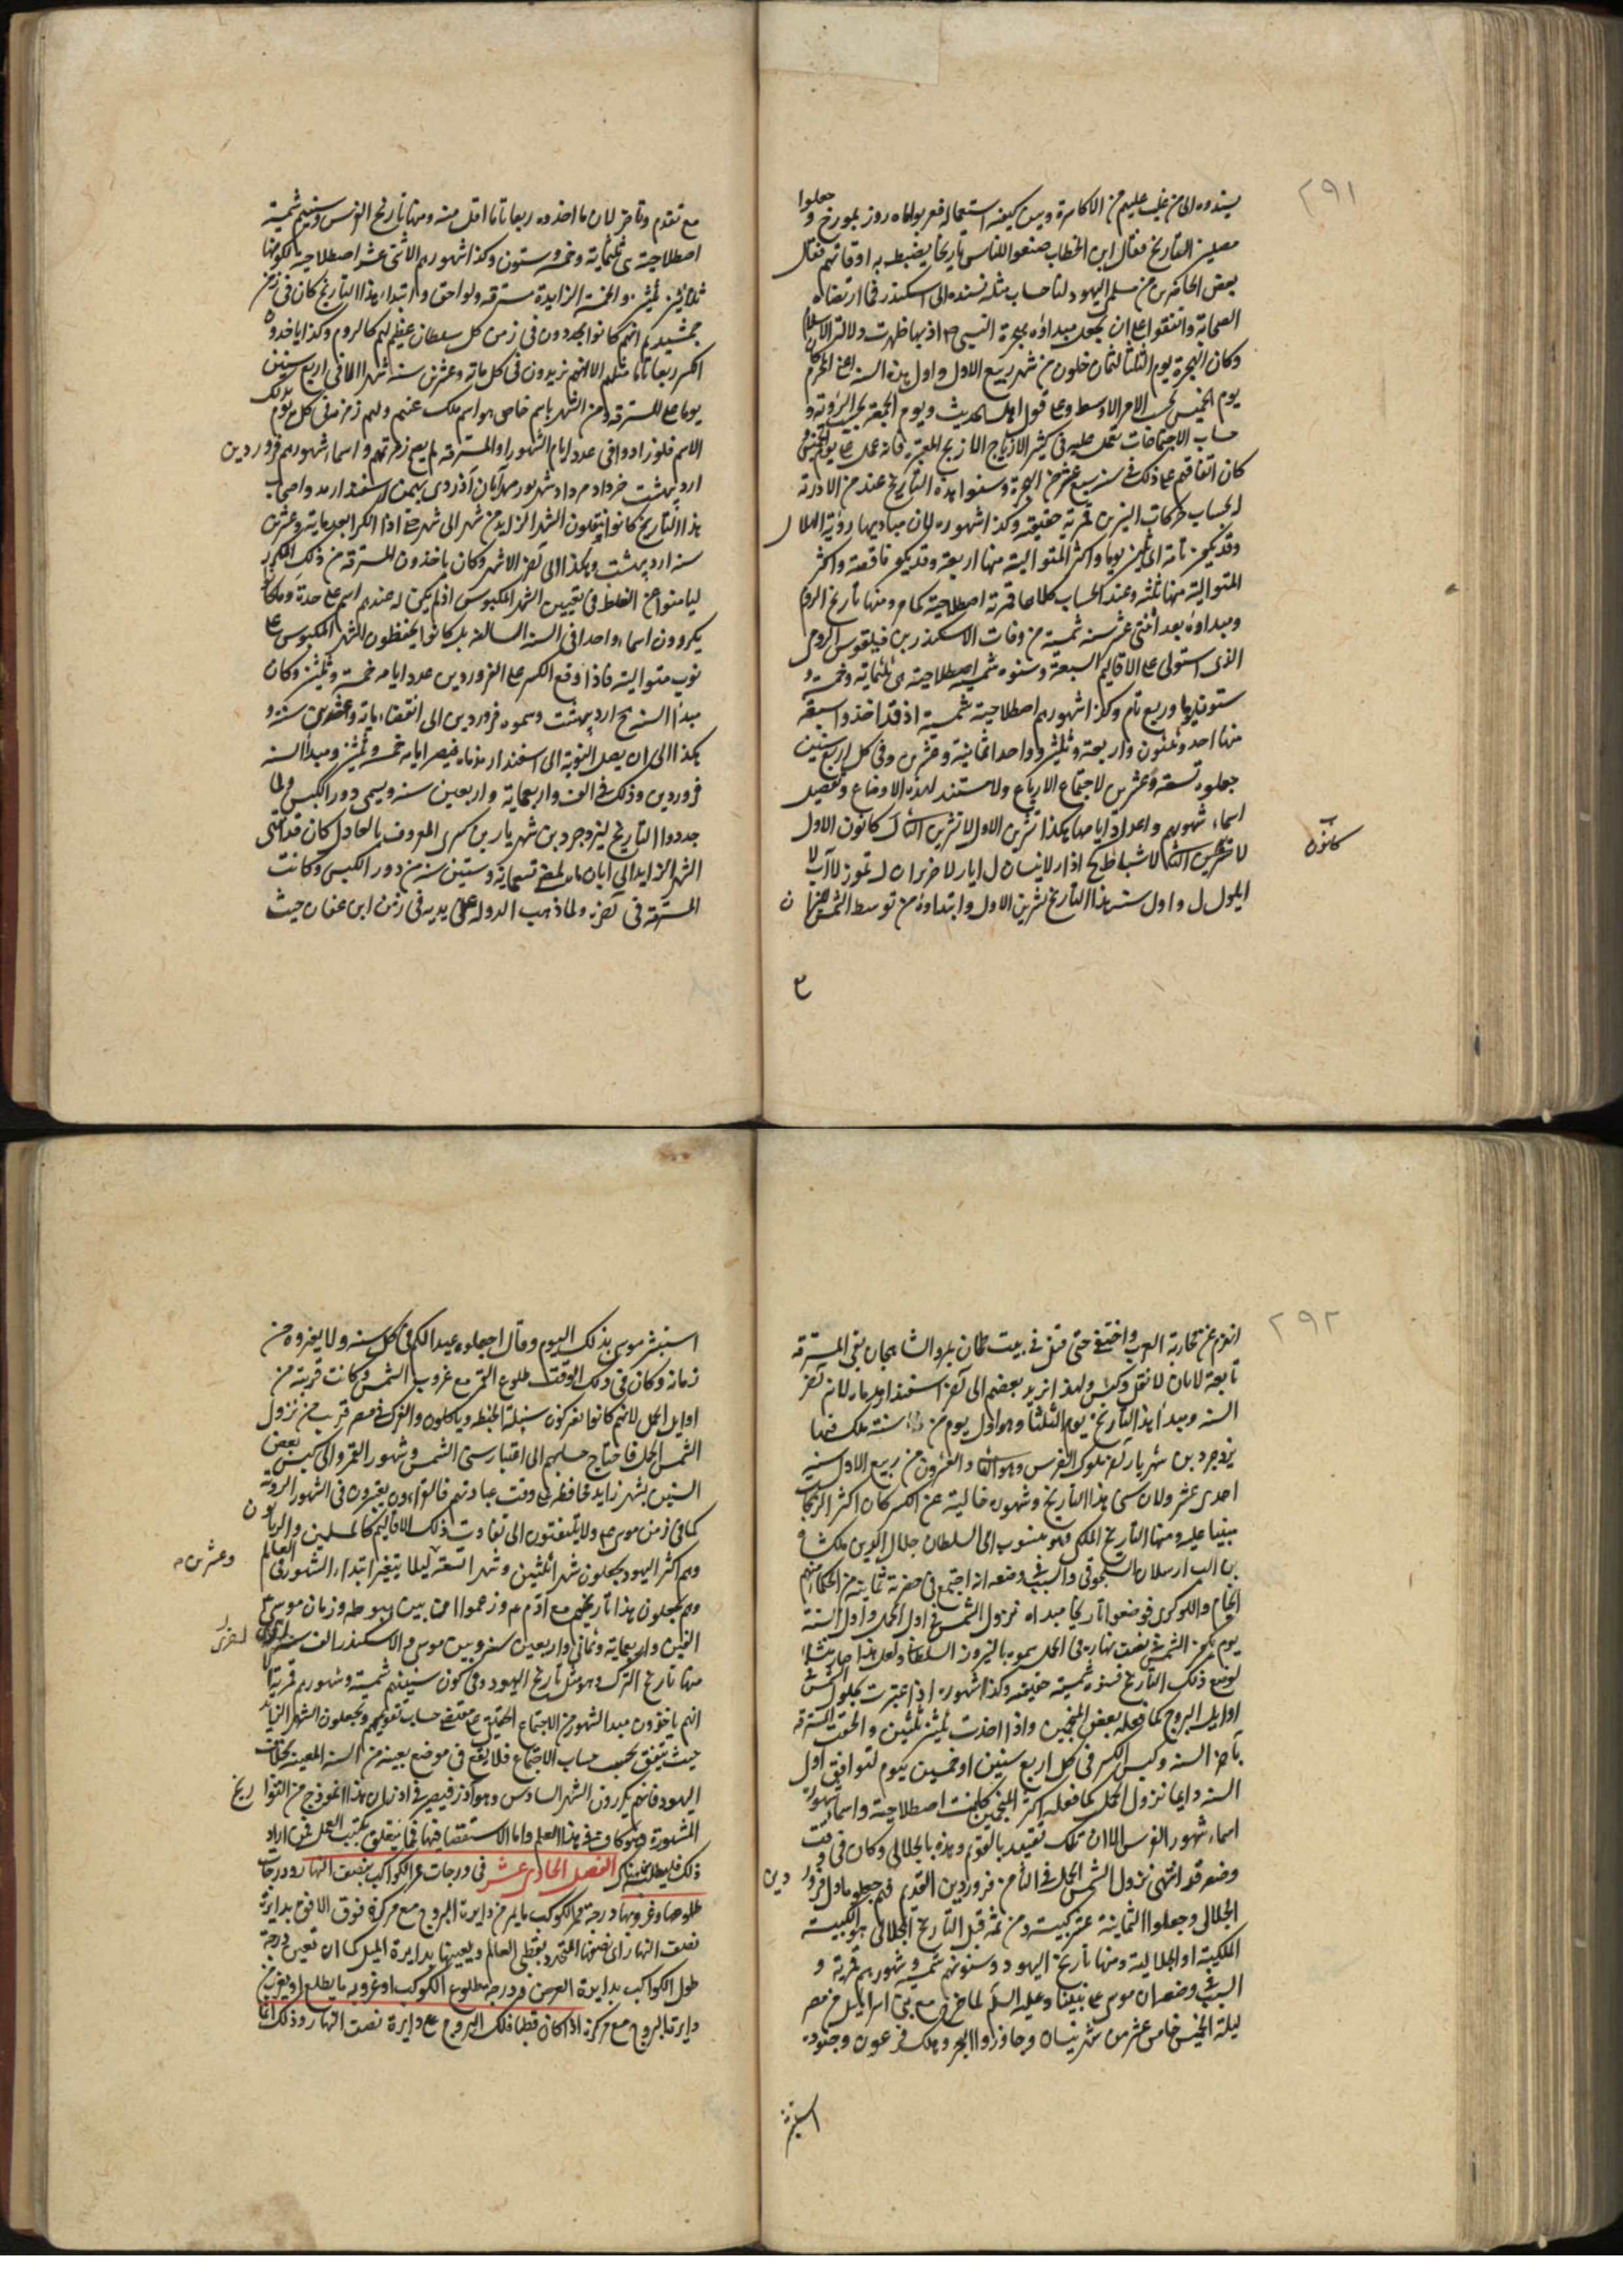 ٢٩١
يسندوه الى من غلب عليهم من الاكاسرة وبين كيفية استعماله فعربوا ماه روز بمورخ و جعلوا
التاريخ فقال ابن الخطاب ضعوا للناس تاريخا يضبط به اوقاتهم فقال
بعض الحاضرين من مسلمى اليهود لنا حساب مثله نسنده الى اسكندر فما ارتضاه
الصحابة واتفقوا على ان يجعل مبداؤه هجرة النبى ص اذ بها ظهرت دولة الاسلام
وكان الهجرة يوم الثلثا لثمان خلون من شهر ربيع الاول واول هذه السنة اعنى المحرم كان
يوم الخميس بحسب الامر الاوسط وعلى قول اهل الحديث ويوم الجمعة بحسب الرؤية و
حساب الاجتماعات نعمل عليه فى كثير الازياج الا زيج المعتبر فانه عمل على يوم الخميس و
كان اتفاقهم على ذلك فى سنة سبع عشر من الهجرة وسنوا هذه التأريخ عند من الا
لحساب حركات النيرين قمرية حقيقية وكذا شهوره لان مباديها رؤية الهلال
وقد يكون تامة اى ثلثين يوما واكثر المتوالية منها اربعة وقد يكون ناقصة واكثر
المتوالية منها ثلثة وعند الحساب كلاهما قمرية اصطلاحية كما مر ومنها تأريخ الروم
ومبداؤه بعد اثنتى عشر سنة شمسية من وفات الاسكندر بن فيلقوس الرومى
الذى استولى على الاقاليم السبعة وسنوه شمسية اصطلاحية هى ثلثمائة وخمسة و
ستون يوما وربع تام وكذا شهورهم اصطلاحية شمسية اذ قد اخذوا سبعة
منها احد وثلثون واربعة وثلثين وواحدا ثمانية وعشرين وفى كل اربع سنين
جعلوه تسعة وعشرين لاجتماع الارباع ولا مستند لهذه الاوضاع وتفصيل
اسماء شهورهم واعداد ايامها هكذا تشرين الاول لا تشرين الثانى ل كانون الاول
لا تشرين الثانى لا شباط كح اذار لا نيسان ل ايار لا حزيران ل تموز لا آب لا
ايلول ل واول سنة هذا التاريخ تشرين الاول وابتداؤه من توسط الشمس الميزان
كانون
مع تقدم وتاخر لان ما اخذوه ربعا تاما اقل منه ومنها تأريخ الفرس وسنيهم شمسية
اصطلاحية هى ثلثمائة وخمسة وستون وكذا شهورهم الاثنى عشر اصطلاحية لكونها
ثلثين ثلثين والخمسة الزايدة مسترقة ولواحق وابتداء هذا التاريخ كان فى زمن
جمشيد ثم انهم كانوا يجددون فى زمن كل سلطان عظيم لهم كالروم وكذا ياخذون
الكسر ربعا تاما مثلهم الا انهم يزيدون فى كل مائة وعشرين سنة شهرا لا فى اربع سنين
يوما على المسترقة ومن الشهر باسم خاص هو اسم ملك عندهم ولهم زمزمة فى كل يوم بذلك
الاسم فلو زادوا فى عدد ايام الشهور او المسترقة لم يصح زمزمتهم واسماء شهورهم فروردين
ارديبهشت خرداد مرداد شهريور مهر آبان آذر دى بهمن اسفندارمد واصحاب
هذا التاريخ كانوا ينقلون الشهر الزايد من شهر الى شهر حتى اذا الكسر بعد مائة وعشرين
سنة ارديبهشت وهكذا الى آخر الاشهر وكان ياخذون المسترقة من ذلك المكرر
ليامنوا عن الغلط فى تعيين الشهر المكبوس اذ لم يكن له عندهم اسم على حدة
يكررون اسما واحدا فى السنة السالفة بل كانوا يحفظون الشهر المكبوس على
نوب متوالية فاذا وقع الكسر على الفروردين عدد ايامه خمسة وثلثين وكان
مبدأ السنة ح ارديبهشت وسموه فروردين الى انقضاء مائة وعشرين سنة و
هكذا الى ان يصل النوبة الى اسفندارمذماه فيصير ايامه خمسة وثلثين ومبدأ السنة
فروردين وذلك فى الف واربعمائة واربعين سنة ويسمى دور الكبس ولما
جددوا التاريخ ليزدجرد بن شهريار بن كسرى المعروف بالعادل كان قد انتهى
الشهر الزايد الى آبان ماه لمضى تسعمائة وستين سنة من دور الكبس وكانت
المسترقة فى آخره ولما ذهب الدولة على يديه فى زمن ابن عفان حيث
٢٩٢
انهزم عن محاربة العرب واختفى حتى قتل فى بيت طحان بمرو الشاهجان بقى المسترقة
تابعة لابان لا نقل وكبس ولهذا يزيد بعضهم الى آخر اسفندارمذماه لانه آخر
السنة ومبدأ هذا التأريخ يوم الثلثا وهو اول يوم من سنة ملك فيها
يزدجرد بن شهريار آخر ملوك الفرس وهو الثانى والعشرون من ربيع الاول سنة
احدى عشر ولان سنى هذا التاريخ وشهوره خالية عن الكسر كان اكثر الزيجات
مبنيا عليه ومنها التأريخ الملكى وهو منسوب الى السلطان جلال الدين ملكشاه
بن الب ارسلان السلجوقى والسبب فى وضعه انه اجتمع فى حضرته ثمانية من الحكماء منهم
الخيام واللوكرى فوضعوا تاريخا مبداه نزول الشمس فى اول الحمل واول السنة
يوم يكون الشمس فى نصف نهاره فى الحمل سموه بالنيروز السلطانى ولعل هذا صار منشا
لوضع ذلك التأريخ فسنوه شمسية حقيقية وكذا شهوره اذا اعتبرت بحلول الشمس
اوايل البروج كما فعله بعض المنجمين واذا اخذت ثلثين ثلثين والحقت المسترقة
بآخر السنة وكبس الكسر فى كل اربع سنين او خمسين بيوم لتوافق اول
السنة دايما نزول الحمل كما فعله اكثر المنجمين كانت اصطلاحية واسماء شهوره
اسماء شهور الفرس الا ان تلك تقيد بالقديم وهذه بالجلالى وكان فى وقت
وضعه قد انتهى نزول الشمس الحمل فى الثامن فروردين القديم فهم جعلوه اول فروردين
الجلالى وجعلوا الثمانية عشر كبيسة ومن ثمة قبل التأريخ الجلالى هو الكبيسة
الملكية او الجلالية ومنها تأريخ اليهود وسنونهم شمسية وشهورهم قمرية و
السبب فى وضعه ان موسى على نبينا وعليه السلم لما خرج مع بنى اسرائيل من مصر
ليلة الخميس خامس عشر من شهر نيسان وجاوزوا البحر وهلك فرعون وجنوده
استبشر
استبشر موسى بذلك اليوم وقال اجعلوه عيدا لكم فى كل سنة ولا يغيروه من
زمانه وكان فى ذلك الوقت طلوع القمر مع غروب الشمس وكانت قريبة من
اوايل الحمل لانهم كانوا يفركون سنبلة الحنطة وياكلون والفرك فى مصر قريب من نزول
الشمس الحمل فاحتاج حسابهم الى اعتبار سنى الشمس وشهور القمر والى كبس بعض
السنين بشهر زايد محافظة على وقت عباداتهم فالقراءون يعتبرون فى الشهور الرؤية
كما فى زمن موسى ع ولا يلتفتون الى تفاوت ذلك الاقاليم كالمسلمين والربانون
وهم اكثر اليهود يجعلون شهرا ثلثين وشهرا تسعة ليلا يتغير ابتداء الشهور فى العالم
وعشرين
وهم يجعلون هذا تأريخهم مع آدم ع م وزعموا ان ما بين هبوطه وزمان موسى ع
الفين واربعمائة وثمانى واربعين سنة وبين موسى والاسكندر الف سنة
منها تاريخ الترك وهو مثل تأريخ اليهود فى كون سنينهم شمسية وشهورهم قمرية الا
انهم ياخذون مبدا الشهور من الاجتماع الحقيقى على مقتضى حساب تقويمهم ويجعلون الشهر الزايد
حيث يتفق بحسب حساب الاجتماع فلا يقع فى موضع بعينه من السنة المعينة بخلاف
اليهود فانهم يكررون الشهر السادس وهو آذر فيصير فى اذران هذا انموذج من التواريخ
المشهورة وهو كاف فى هذا العلم واما الاستقصا فيها فمما يتعلق بكتب العمل فمن اراد
ذلك فليطلب هناك الفصل الحادى عشر فى درجات ممر الكواكب بنصف النهار ودرجات
طلوعها وغروبها درجة ممر الكوكب ما يمر من دايرة البروج مع مركزه فوق الافق بدايرة
نصف النهار اى نصفها المتحدد بقطبى العالم ويعينها بدايرة الميل كما ان تعين درجة
طول الكواكب بدايرة العرض ودرجة طلوع الكوكب او غروبه ما يطلع او يغرب
دايرة البروج مع مركزه اذا كان قطبا فلك البروج على دايرة نصف النهار وذلك اذا